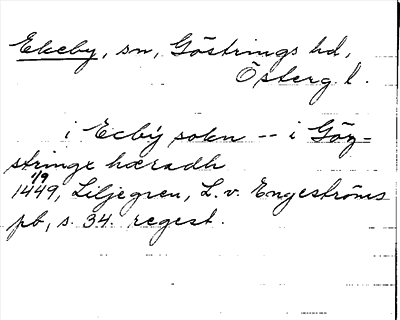 Ekeby, sn, Göstrings hd,
Österg. l.
i Ecby sokn -- i Göz=
stringx hæradh
1/9
1449, Liljegren, L. v. Engeströms
pb, s. 34. regest.